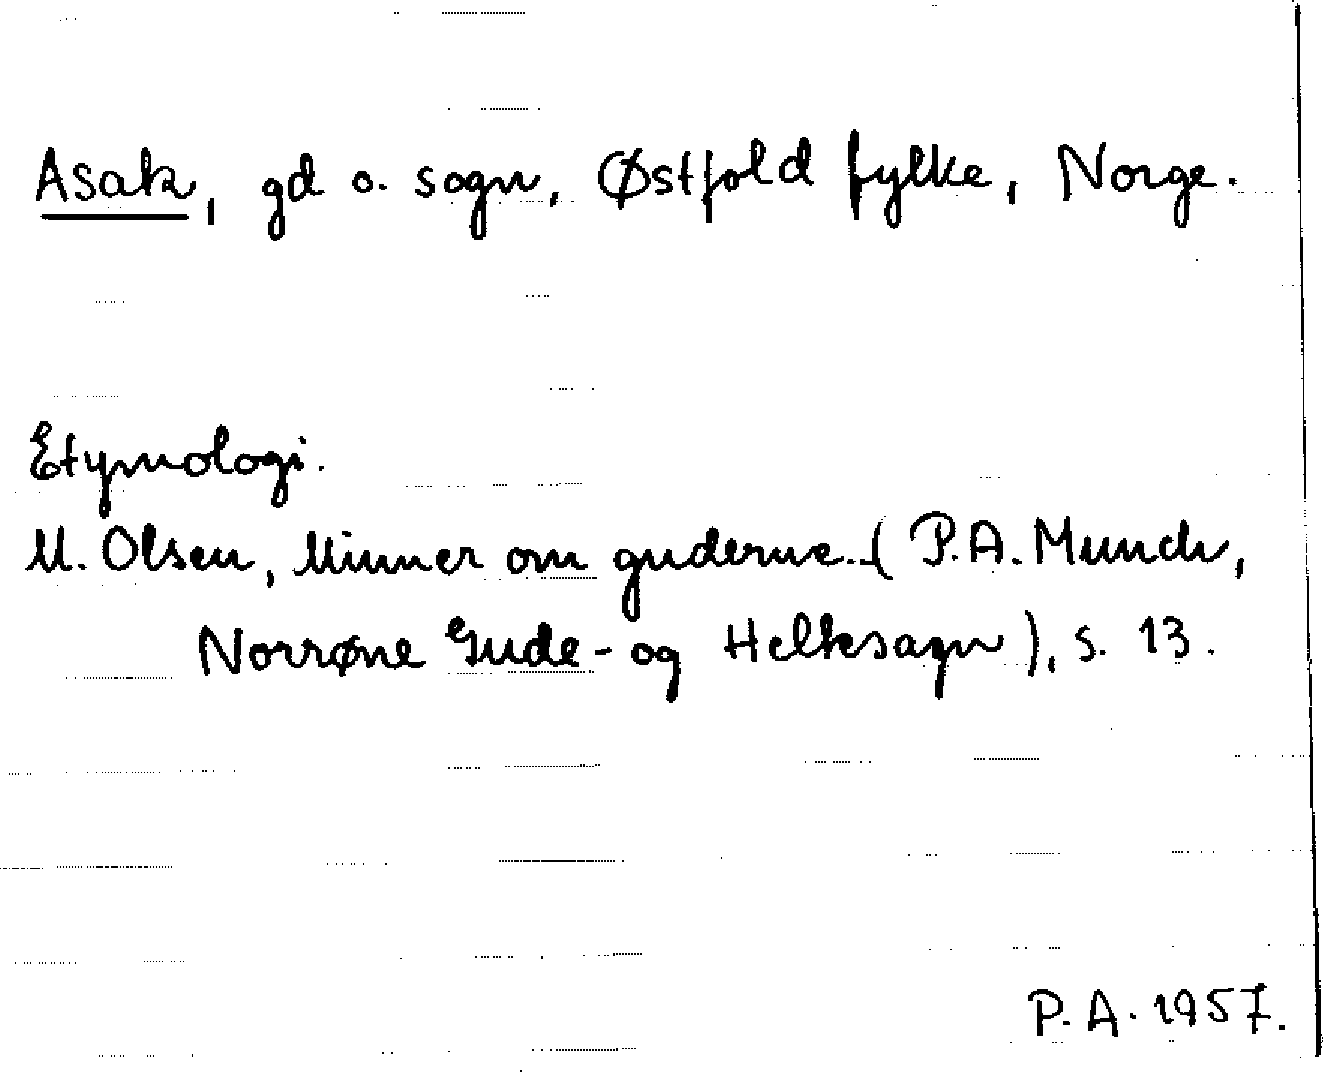 Asak, gd o. sogn, Østfold fylke, Norge.
Etymologi.
M. Olsen, Minner om guderne..( P.A. Munch,
Norrøne Gude- og Heltesagn), s. 13.
P. A. 1957.